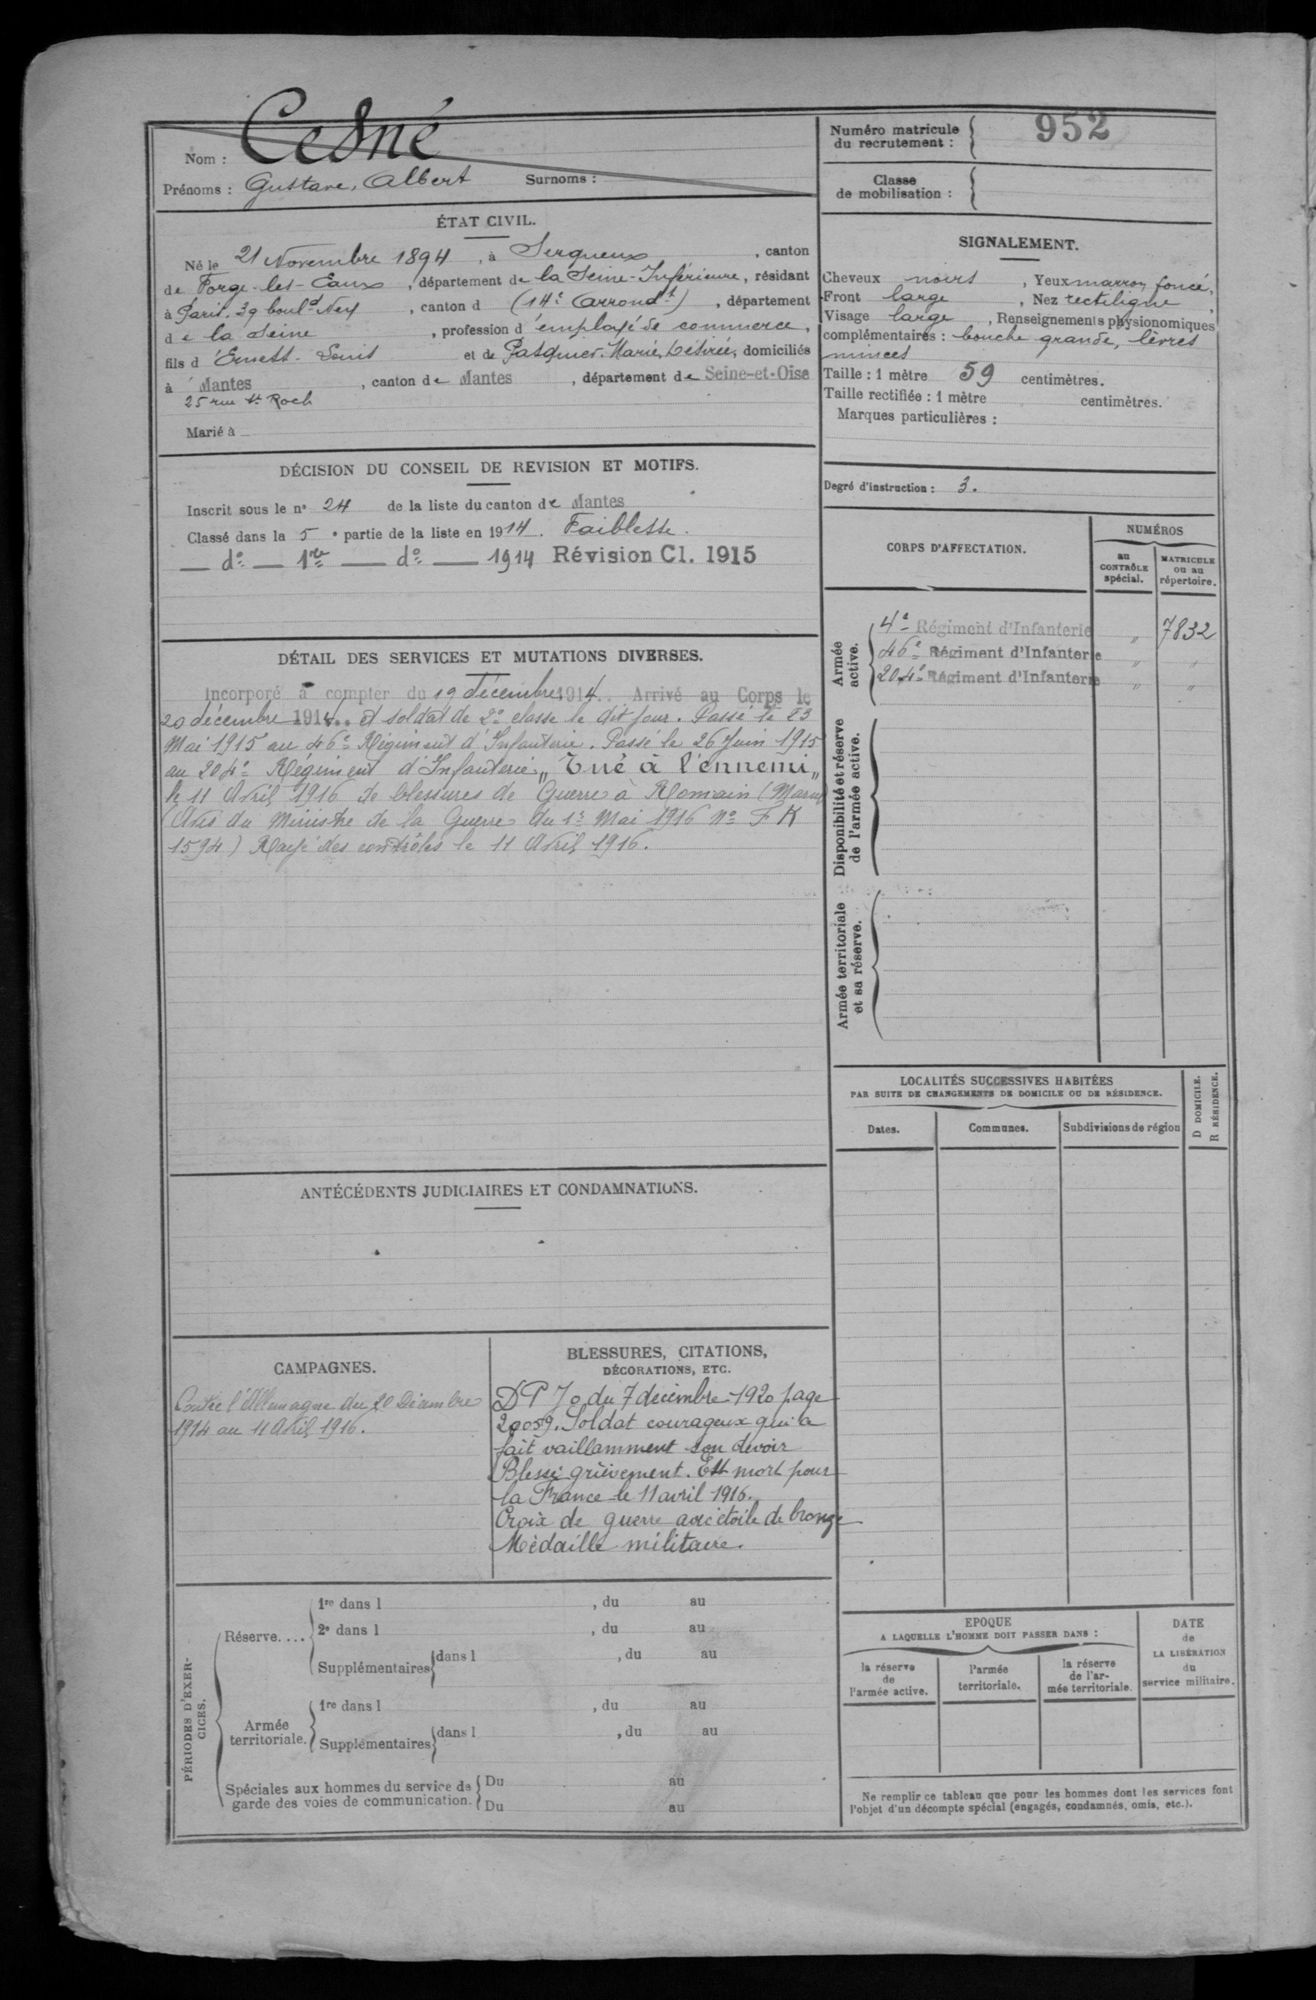 Nom : Cesné
Prénoms : Gustave, Albert Surnoms :
Numéro matricule du recrutement : 952
Classe de mobilisation :
ÉTAT CIVIL.
Né le 21 Novembre 1894, à Serqueux, canton
de Forge-les-Eaux, département de la Seine-Inférieure, résidant
à Paris. 39 boul.d Ney, canton d (14e Arrondt), département
de la Seine, profession d'employé de commerce,
fils d'Ernest-Louis et de Pasquier Marie, Désirée, domiciliés
à Mantes, canton de Mantes, département de Seine-et-Oise
25 rue St Roch
Marié à
SIGNALEMENT.
Cheveux noirs, Yeux marron foncé,
Front large, Nez rectiligne,
Visage large, Renseignements physionomiques
complémentaires : bouche grande, lèvres
minces
Taille : 1 mètre 59 centimètres.
Taille rectifiée : 1 mètre centimètres.
Marques particulières :
Degré d'instruction : 3.
DÉCISION DU CONSEIL DE REVISION ET MOTIFS.
Inscrit sous le n° 24 de la liste du canton de Mantes
Classé dans la 5e partie de la liste en 1914. Faiblesse.
— do — 1re — do — 1914 Révision Cl. 1915
CORPS D'AFFECTATION.
NUMÉROS
au CONTRÔLE spécial.
MATRICULE ou au répertoire.
Armée active.
4e Régiment d'Infanterie " 7832
46e Régiment d'Infanterie " "
204e Régiment d'Infanterie " "
Disponibilité et réserve de l'armée active.
Armée territoriale et sa réserve.
DÉTAIL DES SERVICES ET MUTATIONS DIVERSES.
Incorporé à compter du 19 décembre 1914. Arrivé au Corps le
20 décembre 1914. et soldat de 2e classe le dit jour. Passé le 23
Mai 1915 au 46e Régiment d'Infanterie. Passé le 26 Juin 1915
au 204e Régiment d'Infanterie. " Tué à l'ennemi "
le 11 Avril 1916 de blessures de Guerre à Romain (Marne)
(Avis du Ministre de la Guerre du 1er Mai 1916 No F K
1594) Rayé des contrôles le 11 Avril 1916.
LOCALITÉS SUCCESSIVES HABITÉES
PAR SUITE DE CHANGEMENTS DE DOMICILE OU DE RÉSIDENCE.
Dates. Communes. Subdivisions de région
D DOMICILE.
R RÉSIDENCE.
ANTÉCÉDENTS JUDICIAIRES ET CONDAMNATIONS.
CAMPAGNES.
Contre l'Allemagne du 20 Décembre
1914 au 11 Avril 1916.
BLESSURES, CITATIONS,
DÉCORATIONS, ETC.
D P Jo du 7 decembre 1920 page
20059. Soldat courageux qui a
fait vaillamment son devoir
Blessé grièvement. Est mort pour
la France le 11 avril 1916.
Croix de guerre avec étoile de bronze
Médaille militaire.
PÉRIODES D'EXERCICES.
Réserve....
1re dans l , du au
2e dans l , du au
Supplémentaires dans l , du au
Armée territoriale.
1re dans l , du au
Supplémentaires dans l , du au
Spéciales aux hommes du service de garde des voies de communication.
Du au
Du au
EPOQUE
A LAQUELLE L'HOMME DOIT PASSER DANS :
la réserve de l'armée active.
l'armée territoriale.
la réserve de l'armée territoriale.
DATE de LA LIBÉRATION du service militaire.
Ne remplir ce tableau que pour les hommes dont les services font
l'objet d'un décompte spécial (engagés, condamnés, omis, etc.).